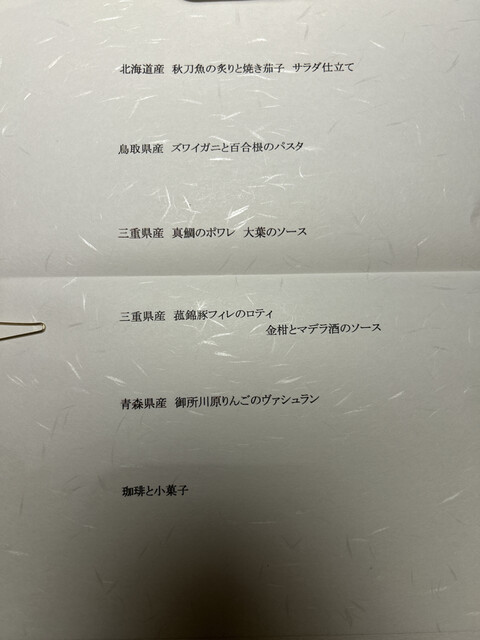 北海道産 秋刀魚の炙りと焼き茄子 サラダ仕立て
鳥取県産 ズワイガニと百合根のパスタ
三重県産 真鯛のポワレ 大葉のソース
三重県産 菰錦豚フィレのロティ
金柑とマデラ酒のソース
青森県産 御所川原りんごのヴァシュラン
珈琲と小菓子